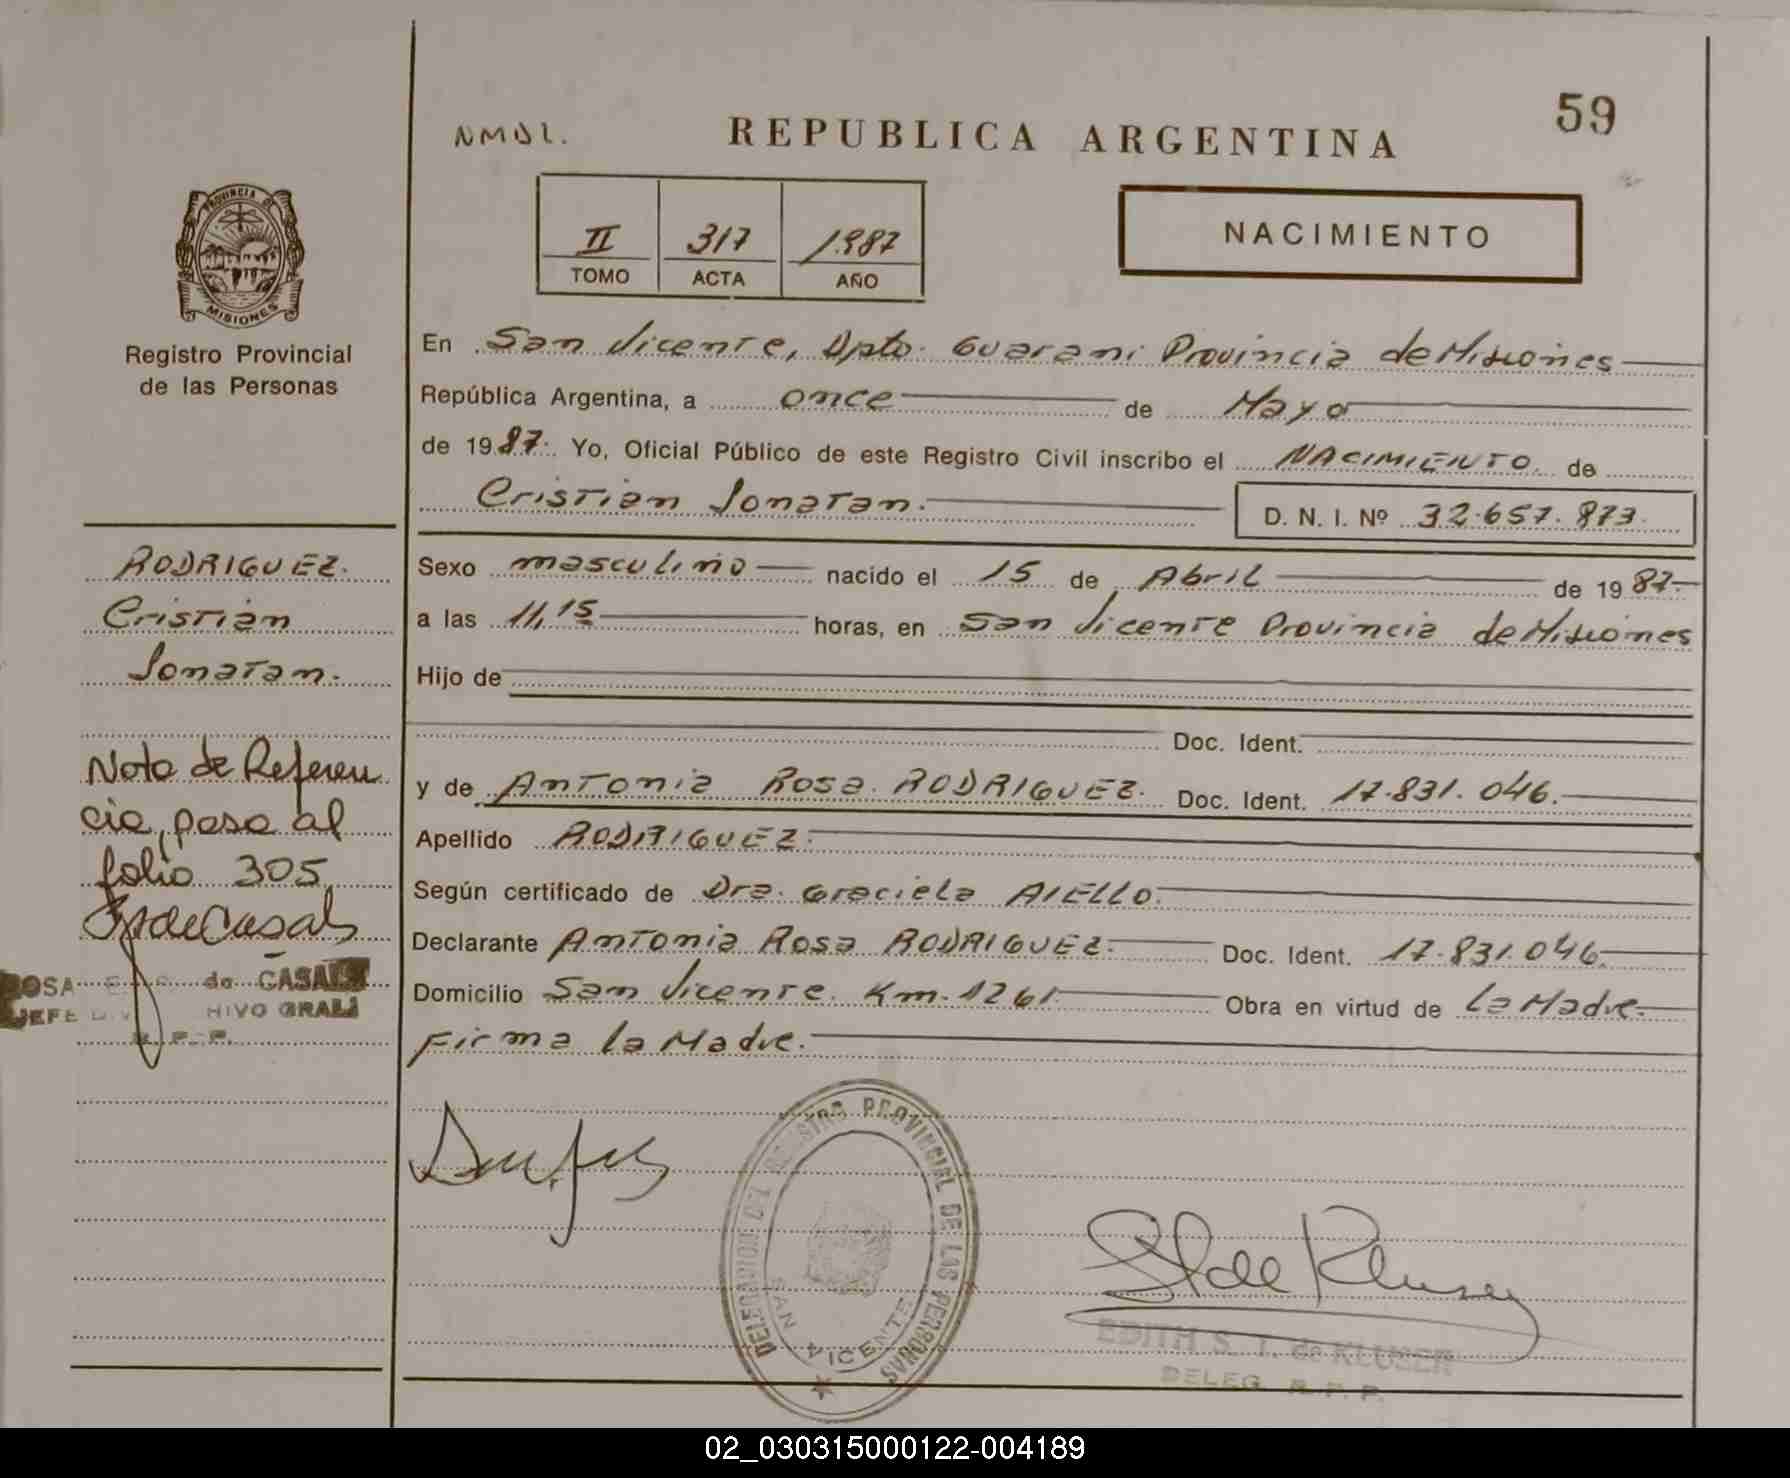 59
NMDL.
REPUBLICA ARGENTINA
II 317 1987
TOMO ACTA AÑO
NACIMIENTO
PROVINCIA DE
MISIONES
Registro Provincial
de las Personas
En San Vicente, Dpto. Guarani Provincia de Misiones
República Argentina, a once de Mayo
de 1987. Yo, Oficial Público de este Registro Civil inscribo el NACIMIENTO de
Cristian Jonatan. D. N. I. Nº 32.657.873.
RODRIGUEZ.
Cristian
Jonatan.
Sexo masculino nacido el 15 de Abril de 1987
a las 11,15 horas, en San Vicente Provincia de Misiones
Hijo de
Doc. Ident.
y de Antonia Rosa RODRIGUEZ. Doc. Ident. 17.831.046.
Apellido RODRIGUEZ.
Según certificado de Dra. Graciela AIELLO.
Declarante Antonia Rosa RODRIGUEZ. Doc. Ident. 17.831.046.
Domicilio San Vicente. Km. 1261. Obra en virtud de La Madre.
Firma la Madre.
Nota de Referen
cia, pasa al
folio 305
de Casals
ROSA de CASALS
JEFE HIVO GRAL
R. P. P.
DELEGACION DEL REGISTRO PROVINCIAL DE LAS PERSONAS
SAN VICENTE
de Kluser
EDITH S. I. de KLUSER
DELEG. R. P. P.
02_030315000122-004189